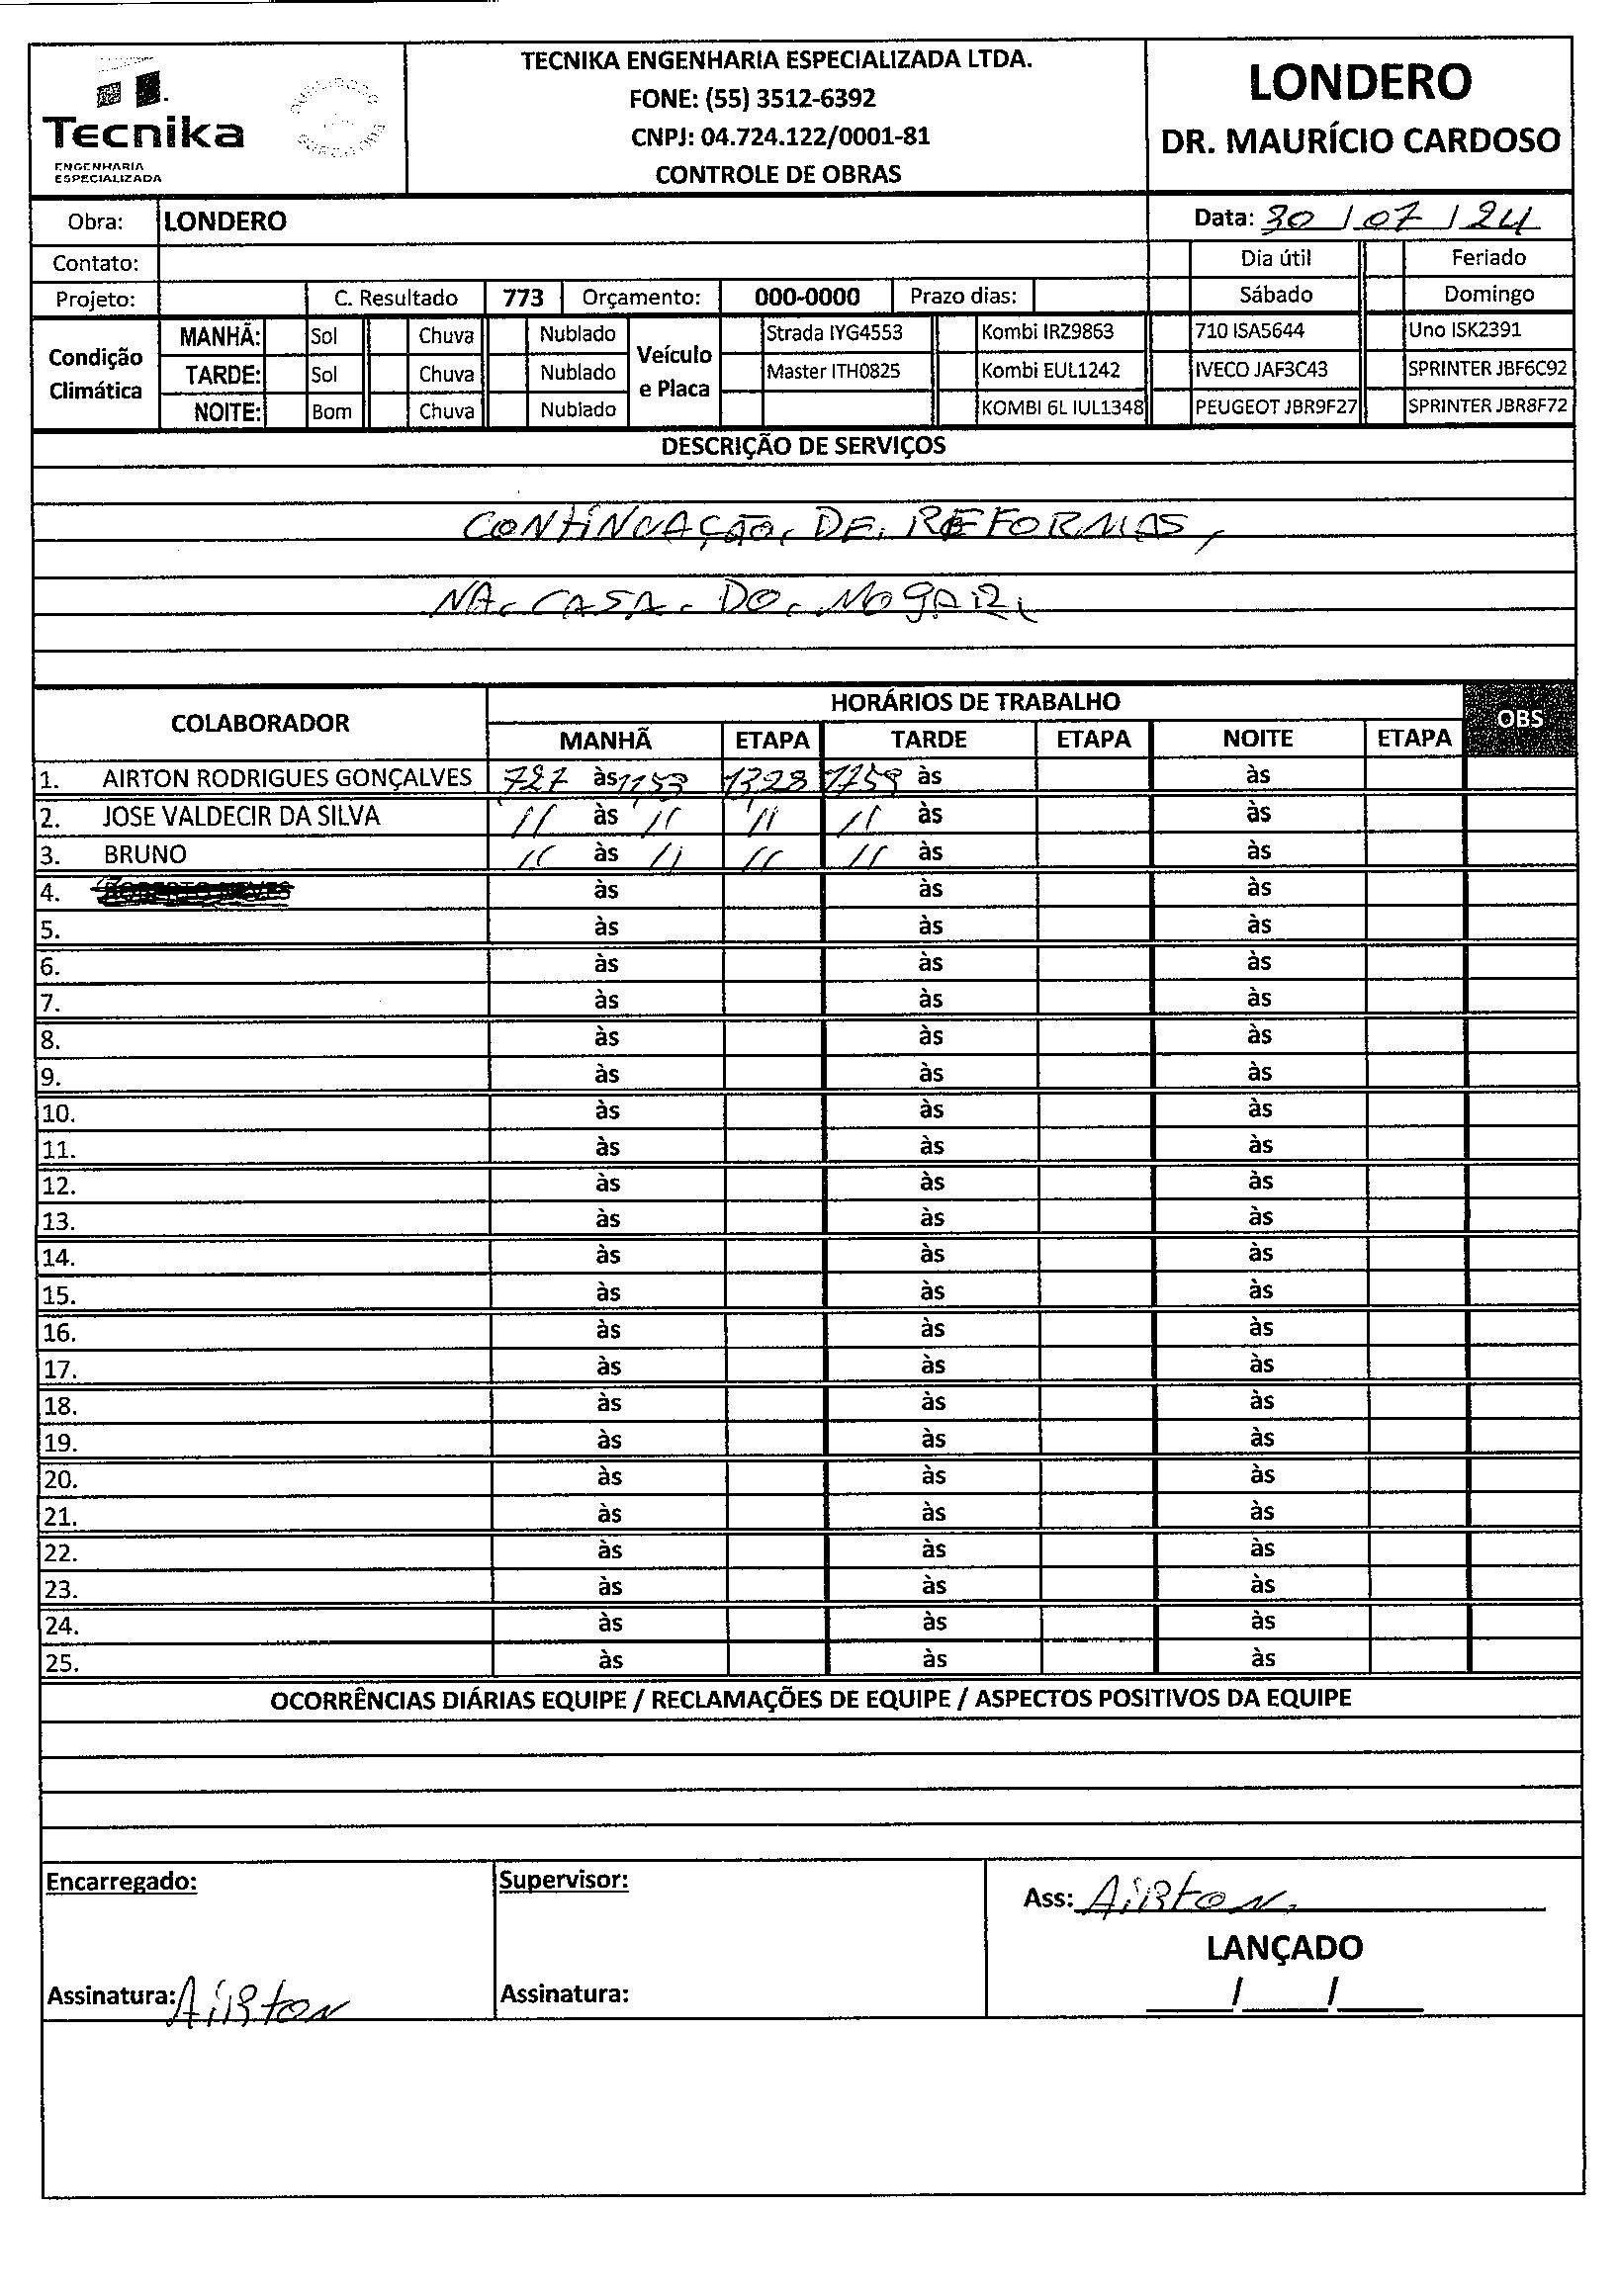 Tecnika
ENGENHARIA
ESPECIALIZADA
TECNIKA ENGENHARIA ESPECIALIZADA LTDA.
FONE: (55) 3512-6392
CNPJ: 04.724.122/0001-81
CONTROLE DE OBRAS
LONDERO
DR. MAURÍCIO CARDOSO
Obra: LONDERO Data: 30/07/24
Contato: Dia útil Feriado
Projeto: C. Resultado 773 Orçamento: 000-0000 Prazo dias: Sábado Domingo
Condição Climática
MANHÃ: Sol Chuva Nublado
TARDE: Sol Chuva Nublado
NOITE: Bom Chuva Nublado
Veículo e Placa
Strada IYG4553 Kombi IRZ9863 710 ISA5644 Uno ISK2391
Master ITH0825 Kombi EUL1242 IVECO JAF3C43 SPRINTER JBF6C92
KOMBI 6L IUL1348 PEUGEOT JBR9F27 SPRINTER JBR8F72
DESCRIÇÃO DE SERVIÇOS
CONTINUAÇÃO. DE. REFORMAS,
NA. CASA. DO.
COLABORADOR HORÁRIOS DE TRABALHO OBS
MANHÃ ETAPA TARDE ETAPA NOITE ETAPA
1. AIRTON RODRIGUES GONÇALVES 727 às 11,53 13,28 1759 às às
2. JOSE VALDECIR DA SILVA 11 às 11 11 11 às às
3. BRUNO 11 às 11 11 11 às às
4. às às às
5. às às às
6. às às às
7. às às às
8. às às às
9. às às às
10. às às às
11. às às às
12. às às às
13. às às às
14. às às às
15. às às às
16. às às às
17. às às às
18. às às às
19. às às às
20. às às às
21. às às às
22. às às às
23. às às às
24. às às às
25. às às às
OCORRÊNCIAS DIÁRIAS EQUIPE / RECLAMAÇÕES DE EQUIPE / ASPECTOS POSITIVOS DA EQUIPE
Encarregado: Supervisor: Ass: Airton.
LANÇADO
Assinatura: Airton Assinatura: / /